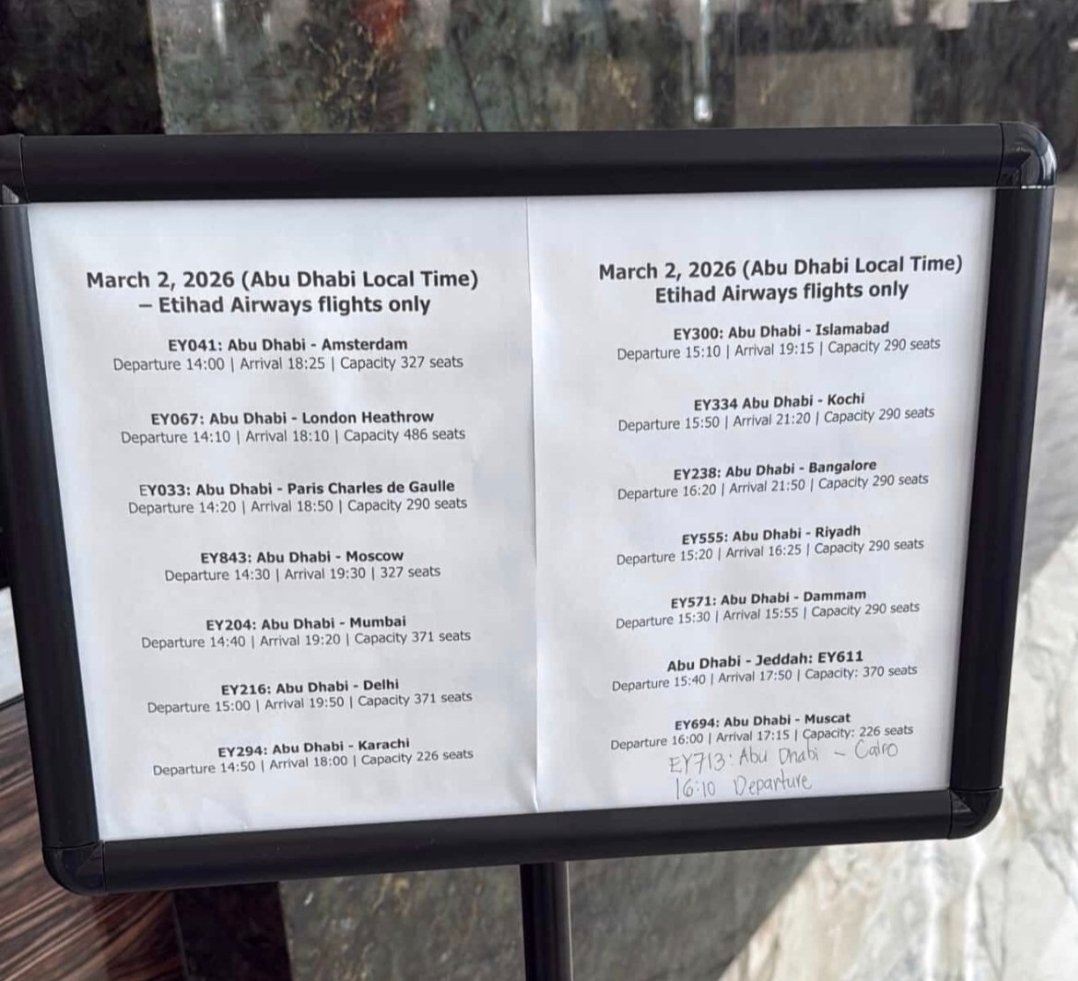 March 2, 2026 (Abu Dhabi Local Time)
– Etihad Airways flights only
EY041: Abu Dhabi - Amsterdam
Departure 14:00 | Arrival 18:25 | Capacity 327 seats
EY067: Abu Dhabi - London Heathrow
Departure 14:10 | Arrival 18:10 | Capacity 486 seats
EY033: Abu Dhabi - Paris Charles de Gaulle
Departure 14:20 | Arrival 18:50 | Capacity 290 seats
EY843: Abu Dhabi - Moscow
Departure 14:30 | Arrival 19:30 | 327 seats
EY204: Abu Dhabi - Mumbai
Departure 14:40 | Arrival 19:20 | Capacity 371 seats
EY216: Abu Dhabi - Delhi
Departure 15:00 | Arrival 19:50 | Capacity 371 seats
EY294: Abu Dhabi - Karachi
Departure 14:50 | Arrival 18:00 | Capacity 226 seats
March 2, 2026 (Abu Dhabi Local Time)
Etihad Airways flights only
EY300: Abu Dhabi - Islamabad
Departure 15:10 | Arrival 19:15 | Capacity 290 seats
EY334 Abu Dhabi - Kochi
Departure 15:50 | Arrival 21:20 | Capacity 290 seats
EY238: Abu Dhabi - Bangalore
Departure 16:20 | Arrival 21:50 | Capacity 290 seats
EY555: Abu Dhabi - Riyadh
Departure 15:20 | Arrival 16:25 | Capacity 290 seats
EY571: Abu Dhabi - Dammam
Departure 15:30 | Arrival 15:55 | Capacity 290 seats
Abu Dhabi - Jeddah: EY611
Departure 15:40 | Arrival 17:50 | Capacity: 370 seats
EY694: Abu Dhabi - Muscat
Departure 16:00 | Arrival 17:15 | Capacity: 226 seats
EY713: Abu Dhabi - Cairo
16:10 Departure